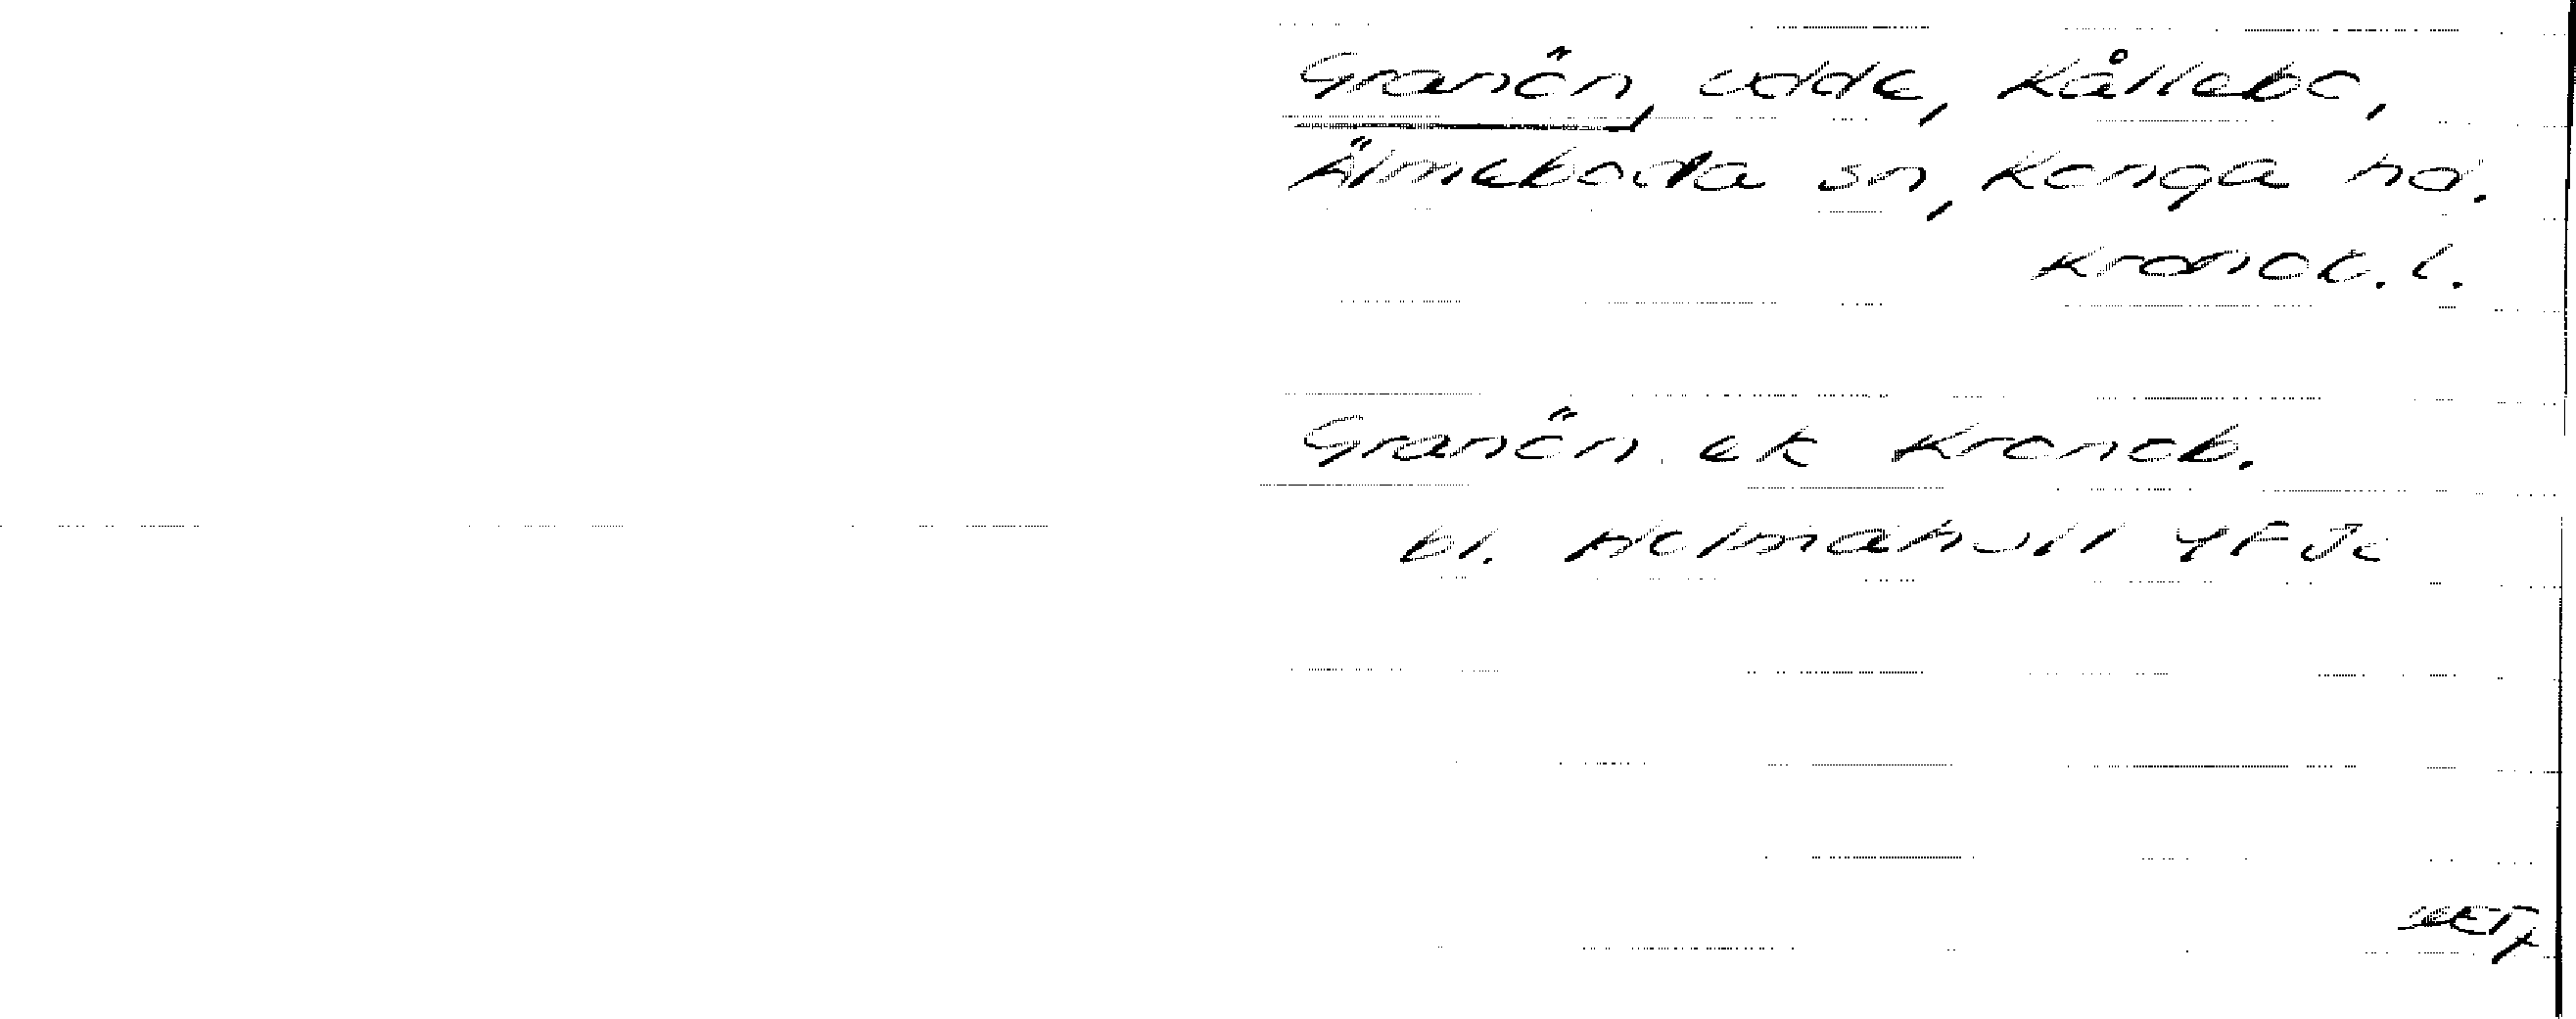 Granön, udde, Kållebo,
Älmeboda sn, Konga hd.
Kronob. l.
Granön ek Kronob.
bl. Holmahult 4F Jc